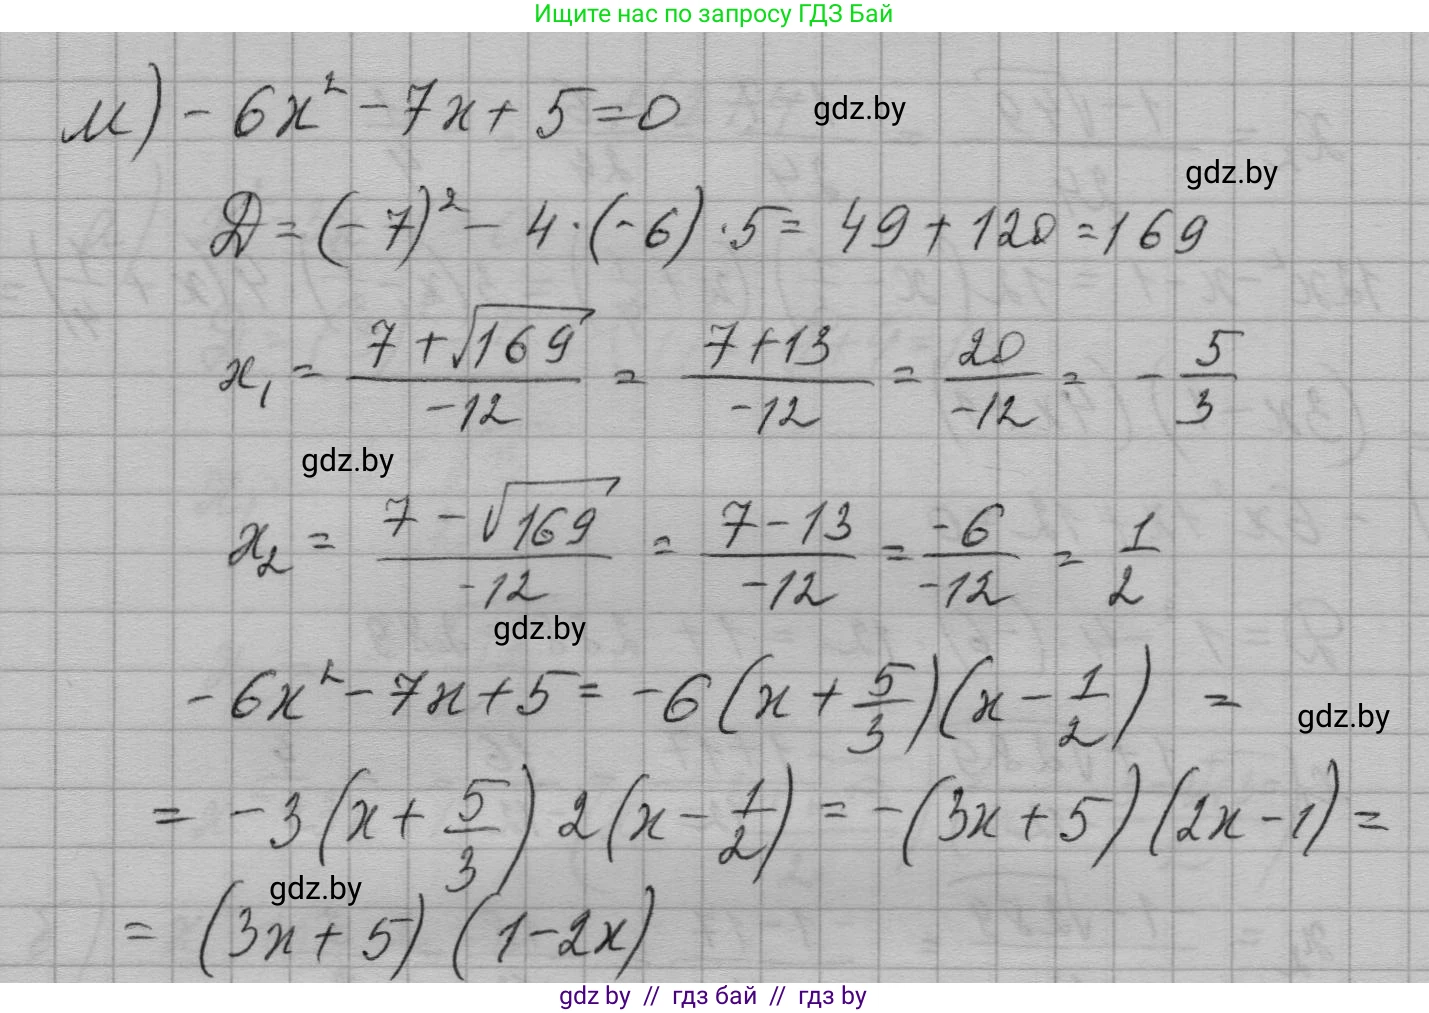 Ищите нас по запросу ГДЗ Бай
м) -6x² - 7x + 5 = 0
gdz.by
gdz.by
Д = (-7)² - 4 · (-6) · 5 = 49 + 120 = 169
x₁ = (7 + √169)/(-12) = (7 + 13)/(-12) = 20/(-12) = -5/3
gdz.by
x₂ = (7 - √169)/(-12) = (7 - 13)/(-12) = (-6)/(-12) = 1/2
gdz.by
-6x² - 7x + 5 = -6(x + 5/3)(x - 1/2) =
gdz.by
= -3(x + 5/3) 2(x - 1/2) = -(3x + 5)(2x - 1) =
gdz.by
= (3x + 5)(1 - 2x)
gdz.by // гдз бай // гдз by